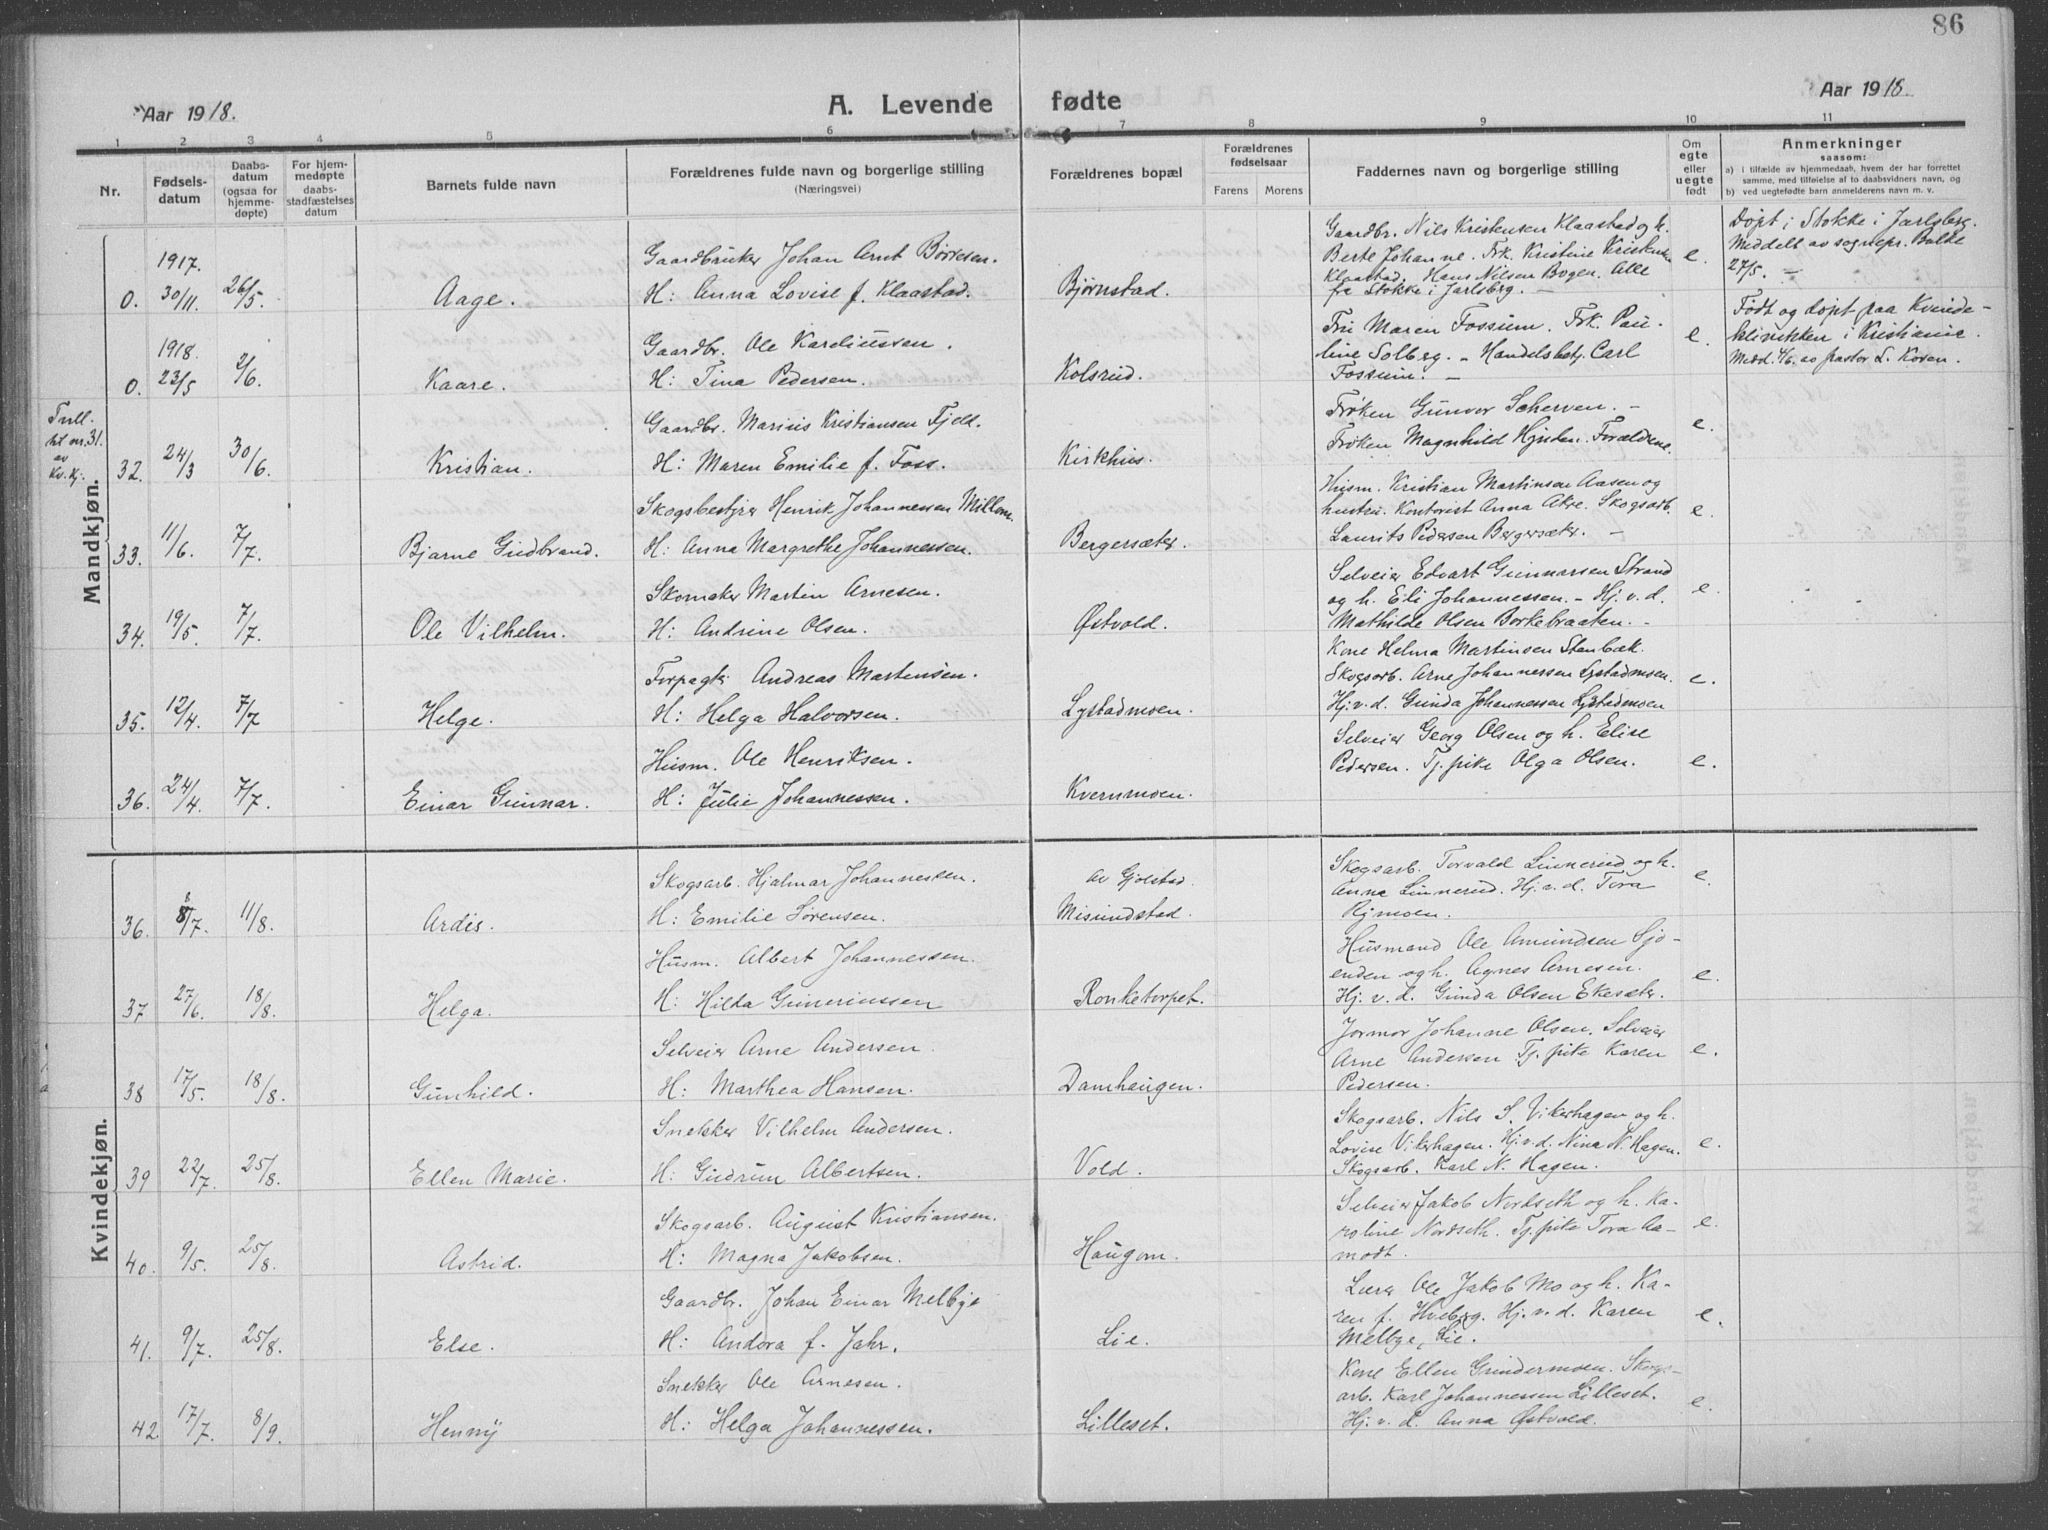 86
Aar 1918.
A. Levende fødte
Aar 1918.
1 2 3 4 5 6 7 8 9 10 11
Nr.
Fødsels-
datum
Daabs-
datum
(ogsaa for
hjemme-
døpte)
For hjem-
medøpte
daabs-
stadfæstelses
datum
Barnets fulde navn
Forældrenes fulde navn og borgerlige stilling
(Næringsvei)
Forældrenes bopæl
Forældrenes
fødselsaar
Farens Morens
Faddernes navn og borgerlige stilling
Om
egte
eller
uegte
født
Anmerkninger
saasom:
a) i tilfælde av hjemmedaab, hvem der har forrettet
samme, med tilføielse af to daabsvidners navn, og
b) ved uegtefødte barn anmelderens navn m. v.
Mandkjøn.
1917.
0. 30/11. 26/5. Aage.
Gaardbruker Johan Arnt Børresen.
H: Anna Lovise f. Klaastad.
Bjørnstad.
Gaardbr. Nils Kristensen Klaastad og h.
Berte Johanne. Frk. Kristine Kristensen
Klaastad. Hans Nilsen Bogen. Alle
fra Stokke i Jarlsberg. –
e.
Døpt i Stokke i Jarlsberg.
Meddelt av sognepr. Balke
27/5. –
1918.
0. 23/5 2/6. Kaare.
Gaardbr. Ole Kardiussen.
H: Tina Pedersen.
Kolsrud.
Fru Maren Fossum. Frk. Pau-
line Solberg. – Handelsbetj. Carl
Fossum. –
e.
Født og døpt paa Kvinde-
klinikken i Kristiania.
Medd. 4/6. av pastor L. Koren.
Tvill.
til nr. 31.
av
Kv. kj.
32. 24/3 30/6. Kristian.
Gaardbr. Marius Kristiansen Fjeld.
H: Maren Emilie f. Foss.
Kirkhus.
Frøken Gunvor Scherven. –
Frøken Magnhild Hjnden. Forældrene.
e.
33. 11/6. 7/7. Bjarne Gudbrand.
Skogsbestyrer Henrik Johannessen Millom.
H: Anna Margrethe Johannessen.
Bergersæter.
Husm. Kristian Martinsen Aasen og
hustru. Kontorist Anna Akre. Skogsarb.
Laurits Pedersen Bergersæter. –
e.
34. 19/5. 7/7. Ole Vilhelm.
Skomaker Martin Arnesen.
H: Andrine Olsen.
Østvold.
Selveier Edvart Gunnarsen Strand
og h. Eli Johannessen. – Hj. v. d.
Mathilde Olsen Borkebraaten. –
e.
35. 12/4. 7/7 Helge.
Forpagtr Andreas Martensen.
H: Helga Halvorsen.
Lystadmoen.
Kone Helma Martinsen Stenbæk.
Skogsarb. Arne Johannessen Lystadmoen.
Hj. v. d. Gunda Johannessen Lystadmoen
e.
36. 24/4. 7/7. Einar Gunnar.
Husm. Ole Henriksen.
H: Julie Johannessen.
Kvernmoen.
Selveier Georg Olsen og h. Elise
Pedersen. Tj. pike Olga Olsen.
e.
Kvindekjøn.
36. 8/7. 11/8. Ardis.
Skogsarb. Hjalmar Johannessen.
H: Emilie Sørensen.
av Gjølstad.
Misundstad.
Skogsarb. Torvald Linnerud og h.
Anna Linnerud. Hj. v. d. Tora
Rymoen.
e.
37 27/6. 18/8. Helga.
Husm. Albert Johannessen.
H: Hilda Guneriussen
Ronketorpet.
Husmand Ole Amundsen Sjø-
enden og h. Agnes Arnesen.
Hj. v. d. Gunda Olsen Ekesæter.
e.
38 17/5. 18/8. Gunhild.
Selveier Arne Andersen.
H: Marthea Hansen.
Damhaugen.
Jormor Johanne Olsen. Selveier
Arne Andersen Tj. pike Karen
Pedersen.
e.
39 22/7. 25/8. Ellen Marie.
Snekker Vilhelm Andersen.
H: Gudrun Albertsen.
Vold.
Skogsarb. Nils S. Vikerhagen og h.
Lovise Vikerhagen. Hj. v. d. Nina N. Hagen.
Skogsarb. Karl N. Hagen.
e.
40. 9/5. 25/8. Astrid.
Skogsarb. August Kristiansen.
H: Magna Jakobsen.
Haugom.
Selveier Jakob Nordseth og h. Ka-
roline Nordseth. Tj. pike Tora Aa-
modt.
e.
41. 9/7. 25/8. Else.
Gaardbr. Johan Einar Melbye
H: Andora f. Jahr.
Lie.
Lærer Ole Jakob Mo og h. Ka-
ren f. Hveberg. Hj. v. d. Karen
Melbye, Lie.
e.
42 17/7. 8/9. Henny
Snekker Ole Arnesen.
H: Helga Johannessen.
Lilleset.
Kone Ellen Grindermoen. Skogs-
arb. Karl Johannessen Lilleset.
Hj. v. d. Anna Østvold.
e.